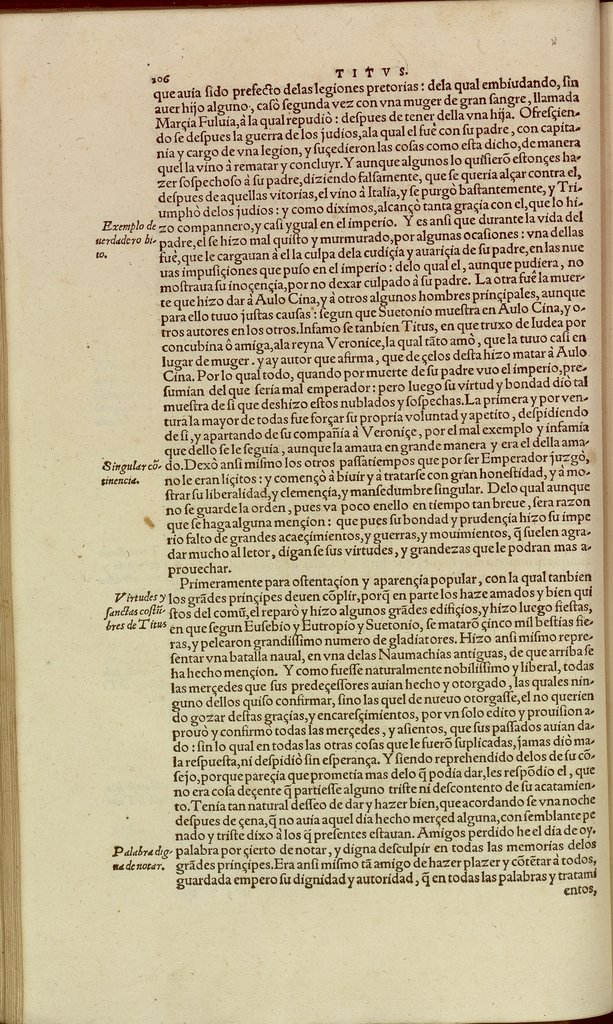 206
TITVS.
que auia sido prefecto delas legiones pretorias: dela qual embiudando, sin
auer hijo alguno, casò segunda vez con vna muger de gran sangre, llamada
Marçia Fuluia, à la qual repudiò: despues de tener della vna hija. Ofresçien-
do se despues la guerra de los judios, ala qual el fuè con su padre, con capita-
nía y cargo de vna legion, y suçedieron las cosas como esta dicho, de manera
quel la vino à rematar y concluyr. Y aunque algunos lo quisierō estonçes ha-
zer sospechoso à su padre, diziendo falsamente, que se quería alçar contra el,
despues de aquellas vitorías, el vino à Italia, y se purgò bastantemente, y Tri-
umphò delos judíos: y como diximos, alcançò tanta graçia con el, que lo hi-
Exemplo de
uerdadero hi-
to.
zo compannero, y casi ygual en el imperío. Y es ansi que durante la vida del
padre, el se hizo mal quisto y murmurado, por algunas ocasiones: vna dellas
fuè, que le cargauan à el la culpa dela cudiçia y auariçia de su padre, en las nue
uas impusiçiones que puso en el imperio: delo qual el, aunque pudiera, no
mostraua su inoçençia, por no dexar culpado à su padre. La otra fuè la muer-
te que hizo dar à Aulo Cina, y à otros algunos hombres prinçipales, aunque
para ello tuuo justas causas: segun que Suetonio muestra en Aulo Cina, y o-
tros autores en los otros. Infamo se tanbien Titus, en que truxo de Iudea por
concubina ò amiga, ala reyna Veroniçe, la qual tāto amò, que la tuuo casi en
lugar de muger. y ay autor que afirma, que de çelos desta hizo matar à Aulo
Cina. Por lo qual todo, quando por muerte de su padre vuo el imperio, pre-
sumian del que sería mal emperador: pero luego su virtud y bondad diò tal
muestra de si que deshizo estos nublados y sospechas. La primera y por ven-
tura la mayor de todas fue forçar su propria voluntad y apetito, despidiendo
de si, y apartando de su compañia à Veroniçe, por el mal exemplo y infamia
que dello se le seguia, aunque la amaua en grande manera y era el della ama-
Singular cō-
tinencia.
do. Dexò ansi mismo los otros passatiempos que por ser Emperador juzgò,
no le eran líçitos: y començò à biuir y à tratarse con gran honestidad, y à mo-
strar su liberalidad, y clemençia, y mansedumbre singular. Delo qual aunque
no se guarde la orden, pues va poco en ello en tiempo tan breue, sera razon
que se haga alguna mençion: que pues su bondad y prudençia hizo su impe
rio falto de grandes acaeçimientos, y guerras, y mouimientos, q̃ suelen agra-
dar mucho al letor, digan se sus virtudes, y grandezas que le podran mas a-
prouechar.
Primeramente para ostentaçion y aparençia popular, con la qual tanbien
Virtudes y
sanctas costū-
bres de Titus
los grādes prinçipes deuen cōplir, porq̃ en parte los haze amados y bien qui
stos del comũ, el reparò y hizo algunos grādes edifiçios, y hizo luego fiestas,
en que segun Eusebio y Eutropio y Suetonio, se matarō çinco mil bestias fie-
ras, y pelearon grandissimo numero de gladiatores. Hizo ansi mismo repre-
sentar vna batalla naual, en vna delas Naumachias antiguas, de que arriba se
ha hecho mençion. Y como fuesse naturalmente nobilissimo y liberal, todas
las merçedes que sus predeçessores auian hecho y otorgado, las quales nin-
guno dellos quiso confirmar, sino las quel de nueuo otorgasse, el no querien
do gozar destas graçias, y encaresçimientos, por vn solo edito y prouision a-
prouò y confirmò todas las merçedes, y asientos, que sus passados auian da-
do: sin lo qual en todas las otras cosas que le fuerō suplicadas, jamas diò ma-
la respuesta, ni despidiò sin esperança. Y siendo reprehendido delos de su cō-
sejo, porque pareçia que prometia mas delo q̃ podia dar, les respōdio el, que
no era cosa deçente q̃ partiesse alguno triste ni descontento de su acatamien-
to. Tenía tan natural desseo de dar y hazer bien, que acordando se vna noche
despues de çena, q̃ no auia aquel día hecho merçed alguna, con semblante pe
nado y triste dixo à los q̃ presentes estauan. Amigos perdido he el día de oy.
Palabra dig-
na de notar.
palabra por çierto de notar, y digna desculpir en todas las memorias delos
grādes prinçipes. Era ansi mismo tā amigo de hazer plazer y cōtētar à todos,
guardada empero su dignidad y autoridad, q̃ en todas las palabras y tratami
entos,